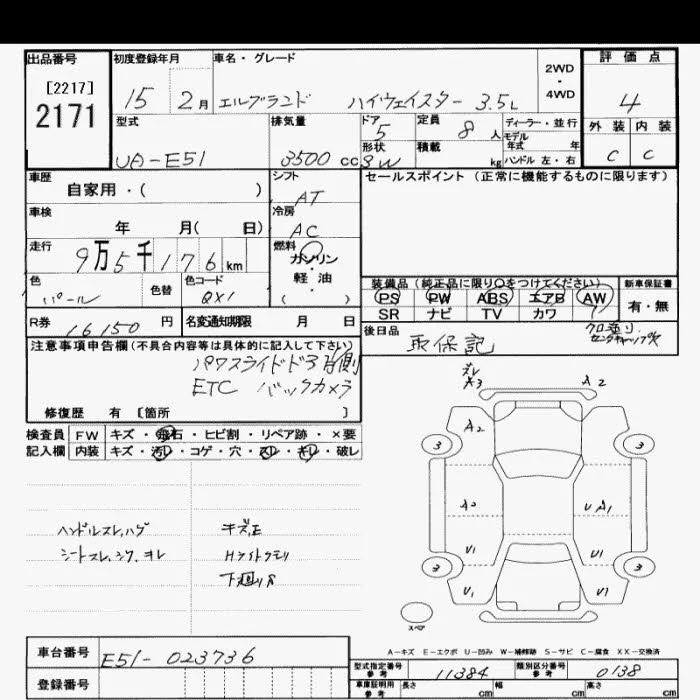 出品番号 初度登録年月 車名・グレード 評価点
[2217]
2171
15 2月 エルグランド ハイウェイスター 3.5L
2WD
・
4WD
4
型式 排気量 ドア 5 定員 8人 ディーラー・並行
モデル
年式 年
外装 内装
UA-E51 3500cc 形状 SW 積載 kg ハンドル 左・右 C C
車歴 自家用・( )
シフト AT
セールスポイント(正常に機能するものに限ります)
車検 年 月( 日)
冷房 AC
走行 9万5千176km
燃料 ガソリン
・
軽油
( )
色 パール 色替 色コード QX1
装備品(純正品に限り○をつけてください) 新車保証書
PS PW ABS エアB AW 有・無
SR ナビ TV カワ
R券 16150円 名変通知期限 月 日
後日品 取保記
注意事項申告欄(不具合内容等は具体的に記入して下さい)
パワスライドドア 片側
ETC バックカメラ
修復歴 有 [箇所 ]
検査員 FW キズ・飛石・ヒビ割・リペア跡・×要
記入欄 内装 キズ・汚レ・コゲ・穴・スレ・キレ・破レ
A3 A2
A2
3 3
A2 U A1
U1 U1
3 3
U1 U1
スペア
ハンドルスレ,ハゲ キズ,E
シートスレ,シワ,ヨレ Hライトクモリ
下廻りS
A-キズ E-エクボ U-凹み W-補修跡 S-サビ C-腐食 XX-交換済
車台番号 E51-023736
型式指定番号 参考 11384 類別区分番号 参考 0138
登録番号
車庫証明用 参考 長さ cm 幅 cm 高さ cm